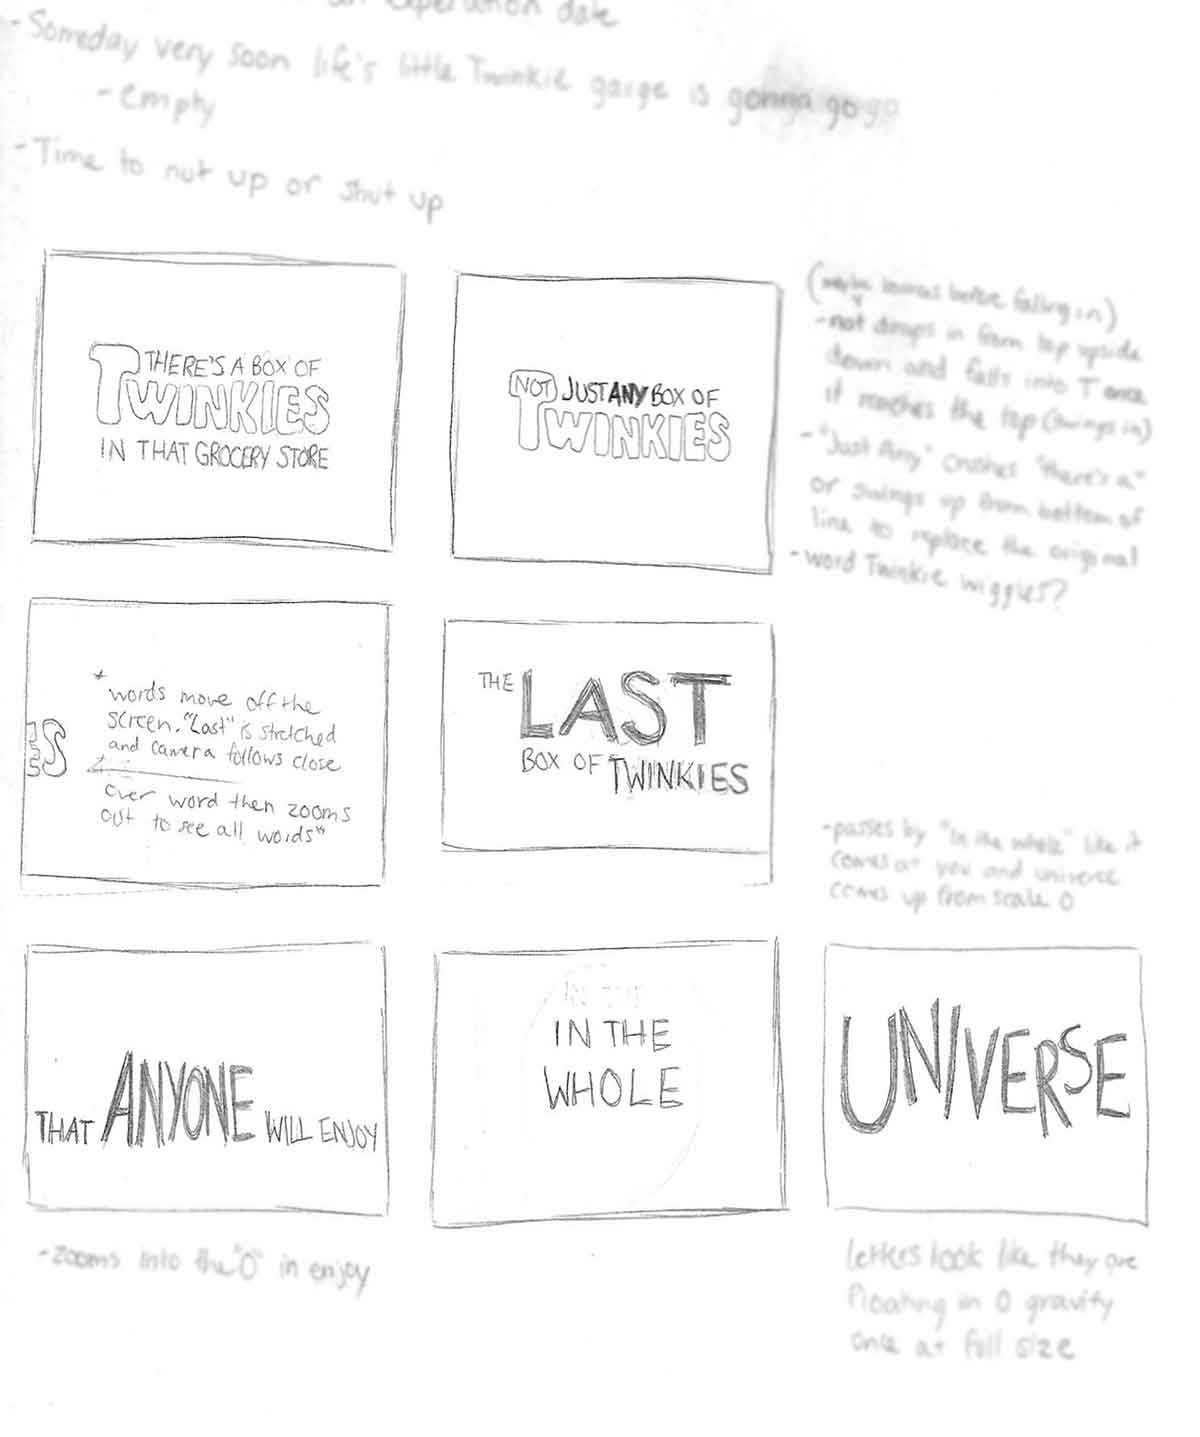 an experation date
- Someday very soon life's little Twinkie garge is gonna go
- empty
- Time to nut up or shut up
THERE'S A BOX OF
TWINKIES
IN THAT GROCERY STORE
NOT JUST ANY BOX OF
TWINKIES
(maybe bounces before falling in)
- not drops in from top upside
down and falls into T once
it reaches the top (swings in)
- "Just Any" crushes "there's a"
or swings up from bottom of
line to replace the original
- word Twinkie wiggles?
ES
*words move off the
screen. "Last" is stretched
and camera follows close
over word then zooms
out to see all words*
THE LAST
BOX OF TWINKIES
- passes by "In the whole" like it
comes at you and universe
comes up from scale 0
THAT ANYONE WILL ENJOY
IN THE
IN THE
WHOLE
UNIVERSE
- zooms into the "O" in enjoy
letters look like they are
floating in 0 gravity
once at full size